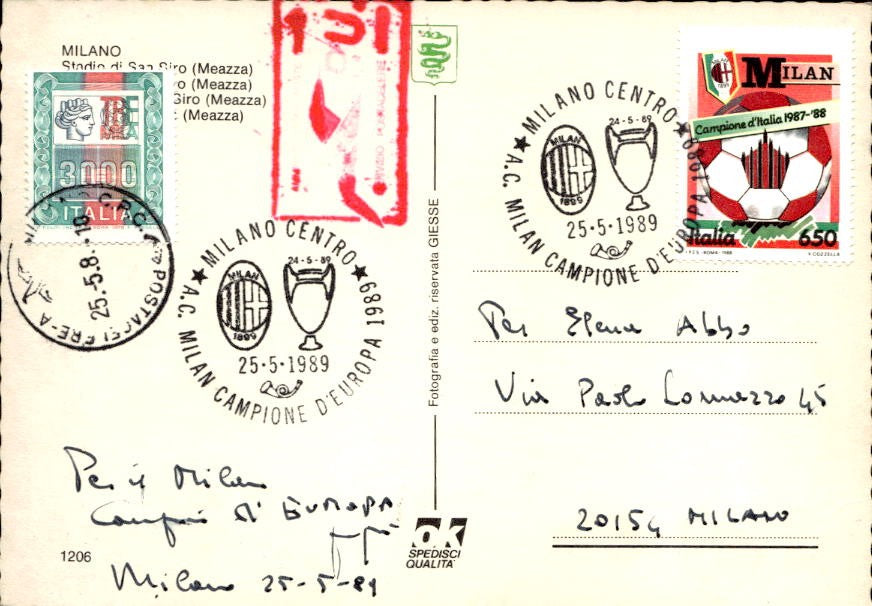 MILANO
Stadio di San Siro (Meazza)
ro (Meazza)
Siro (Meazza)
(Meazza)
3000
ITALIA
25.5.8
POSTACELERE-A
151
MILANO CENTRO
24-5-89
MILAN
1899
25-5-1989
★ A.C. MILAN CAMPIONE D'EUROPA 1989 ★
MILANO CENTRO
24-5-89
MILAN
1899
25-5-1989
★ A.C. MILAN CAMPIONE D'EUROPA 1989 ★
MILAN
1899
Campione d'Italia 1987-'88
Italia 650
I.P.Z.S. - ROMA - 1988 V. COZZELLA
Fotografia e ediz. riservata GIESSE
Per Elena Abbo
Via Paolo Lomazzo 45
20154 MILANO
Per il Milan
Campione d'EUROPA
Milano 25-5-89
1206
ok
SPEDISCI
QUALITA'